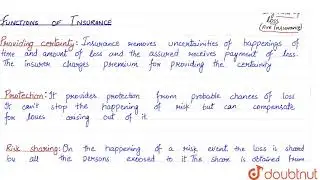 loss
(Are insurance)
FUNCTIONS OF INSURANCE
Providing certainty: Insurance removes uncertainities of happenings of
time and amount of loss and the assured receives payment of loss.
The insurer charges premium for providing the certainity
Protection: It provides protection from probable chances of loss
It can't stop the happening of risk but can compensate
for losses arising out of it.
Risk sharing: On the happening of a risk event the loss is shared
by all the persons exposed to it. The share is obtained from
doubtnut